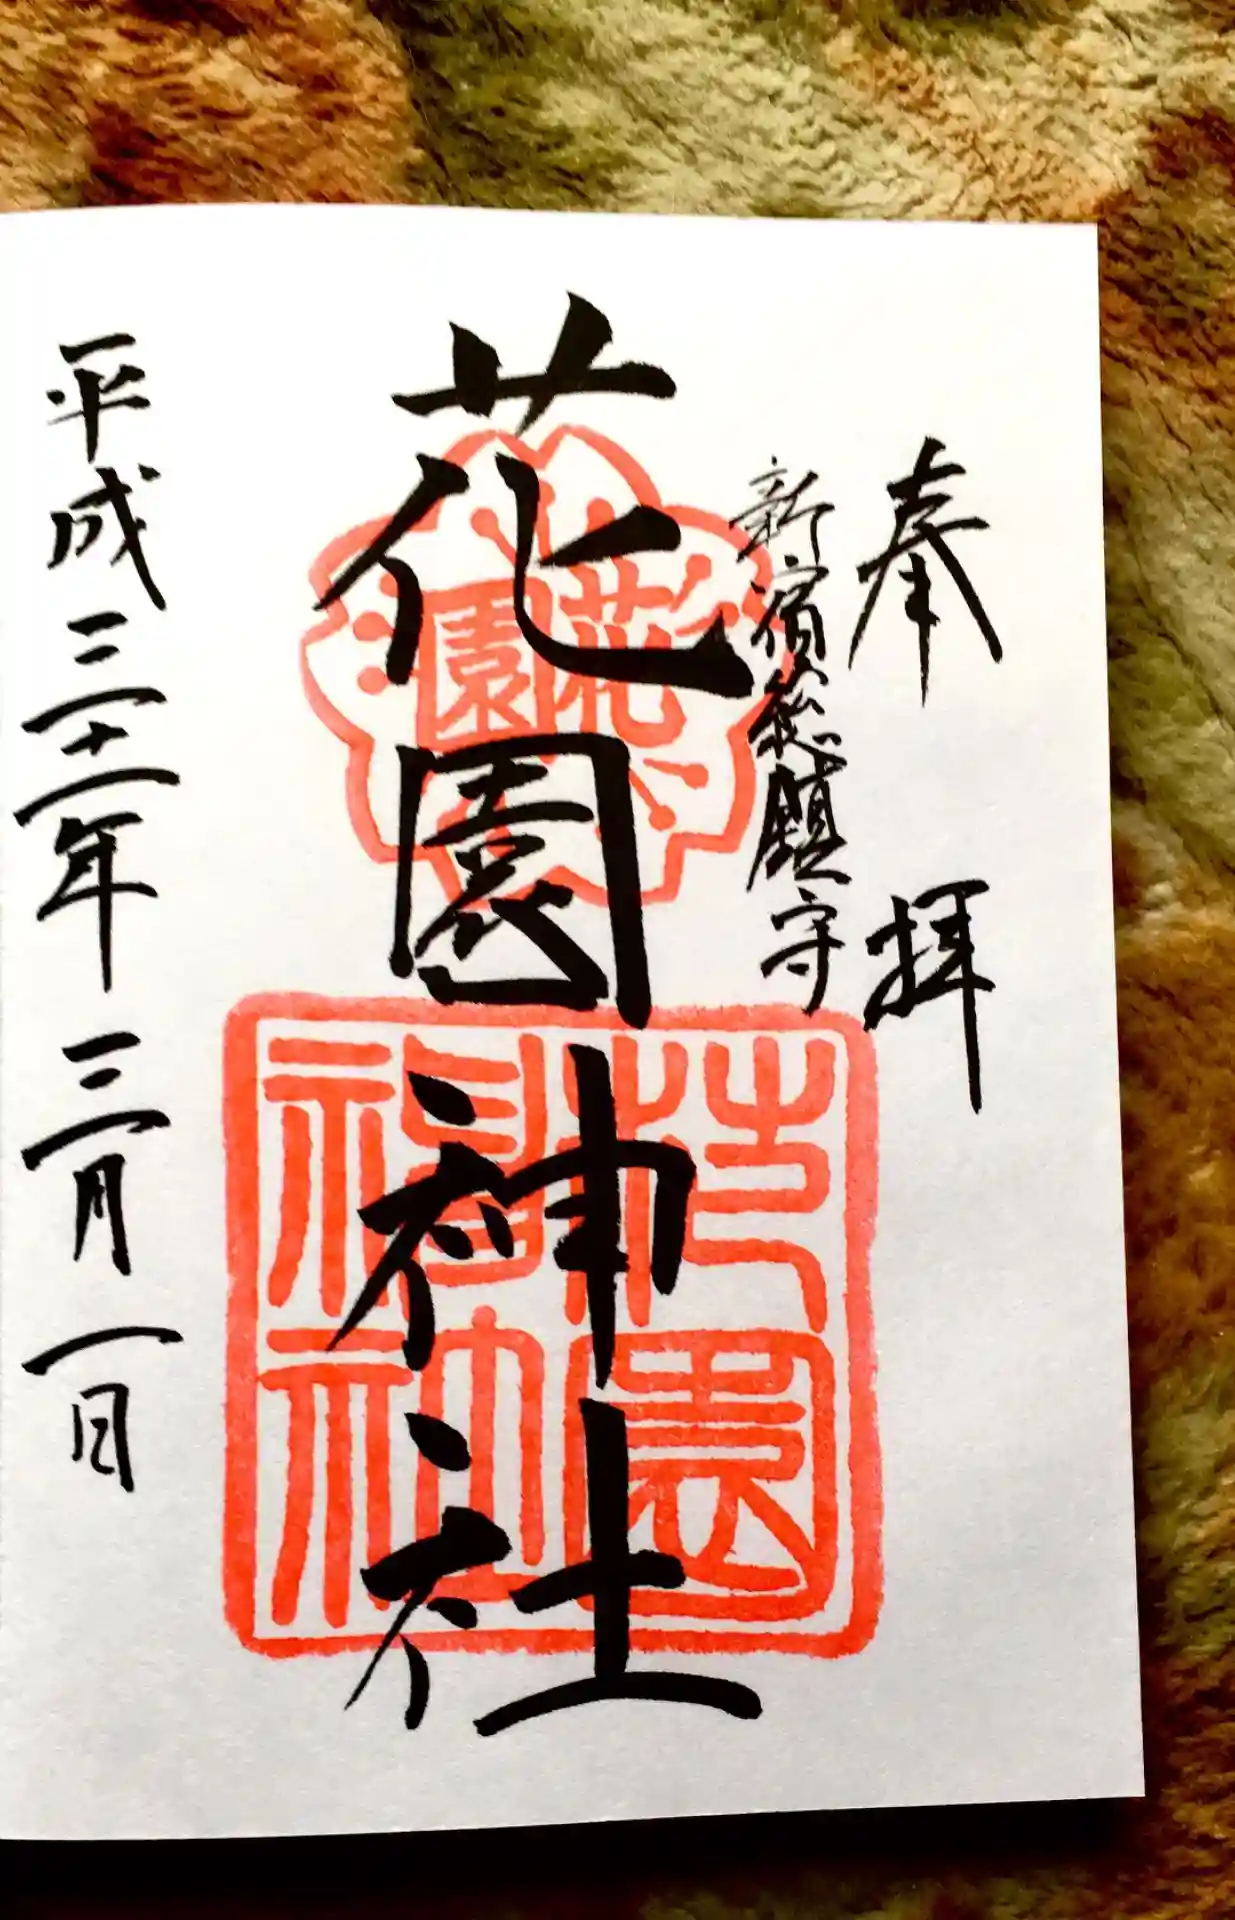 奉拝
新宿総鎮守
花園神社
平成三十一年三月一日
花園
花園神社